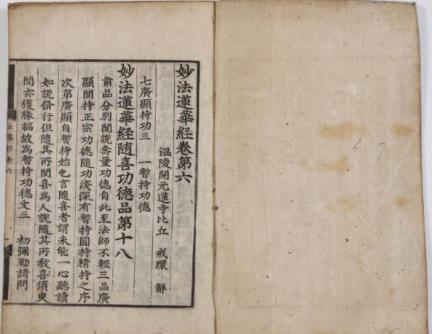 妙法蓮華經卷第六
溫陵開元蓮寺比丘 戒環 解
七廣顯持功三 一暫持功德
妙法蓮華經隨喜功德品第十八
前品分別聞說壽量功德自此至法師不輕三品廣
顯聞持正宗功德隨功淺深有暫持圓持精持之序
次第廣顯自暫持始也言隨喜者謂未能一心聽讀
如說脩行但隨其所聞喜為人說隨其所教喜須臾
聞亦獲勝福故為暫持功德文三 初彌勒請問